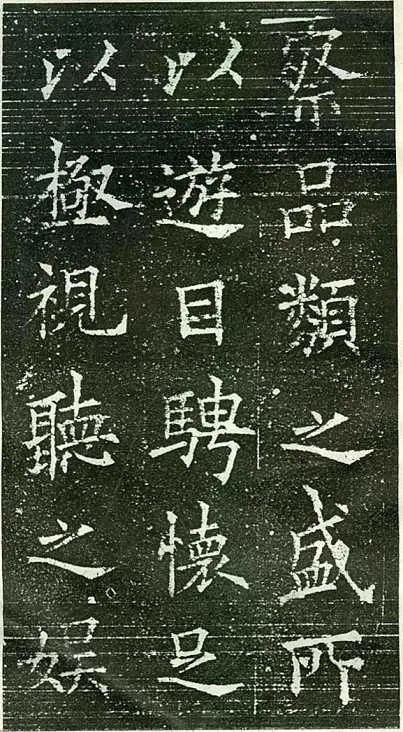 察品類之盛所
以遊目騁懷足
以極視聽之娱